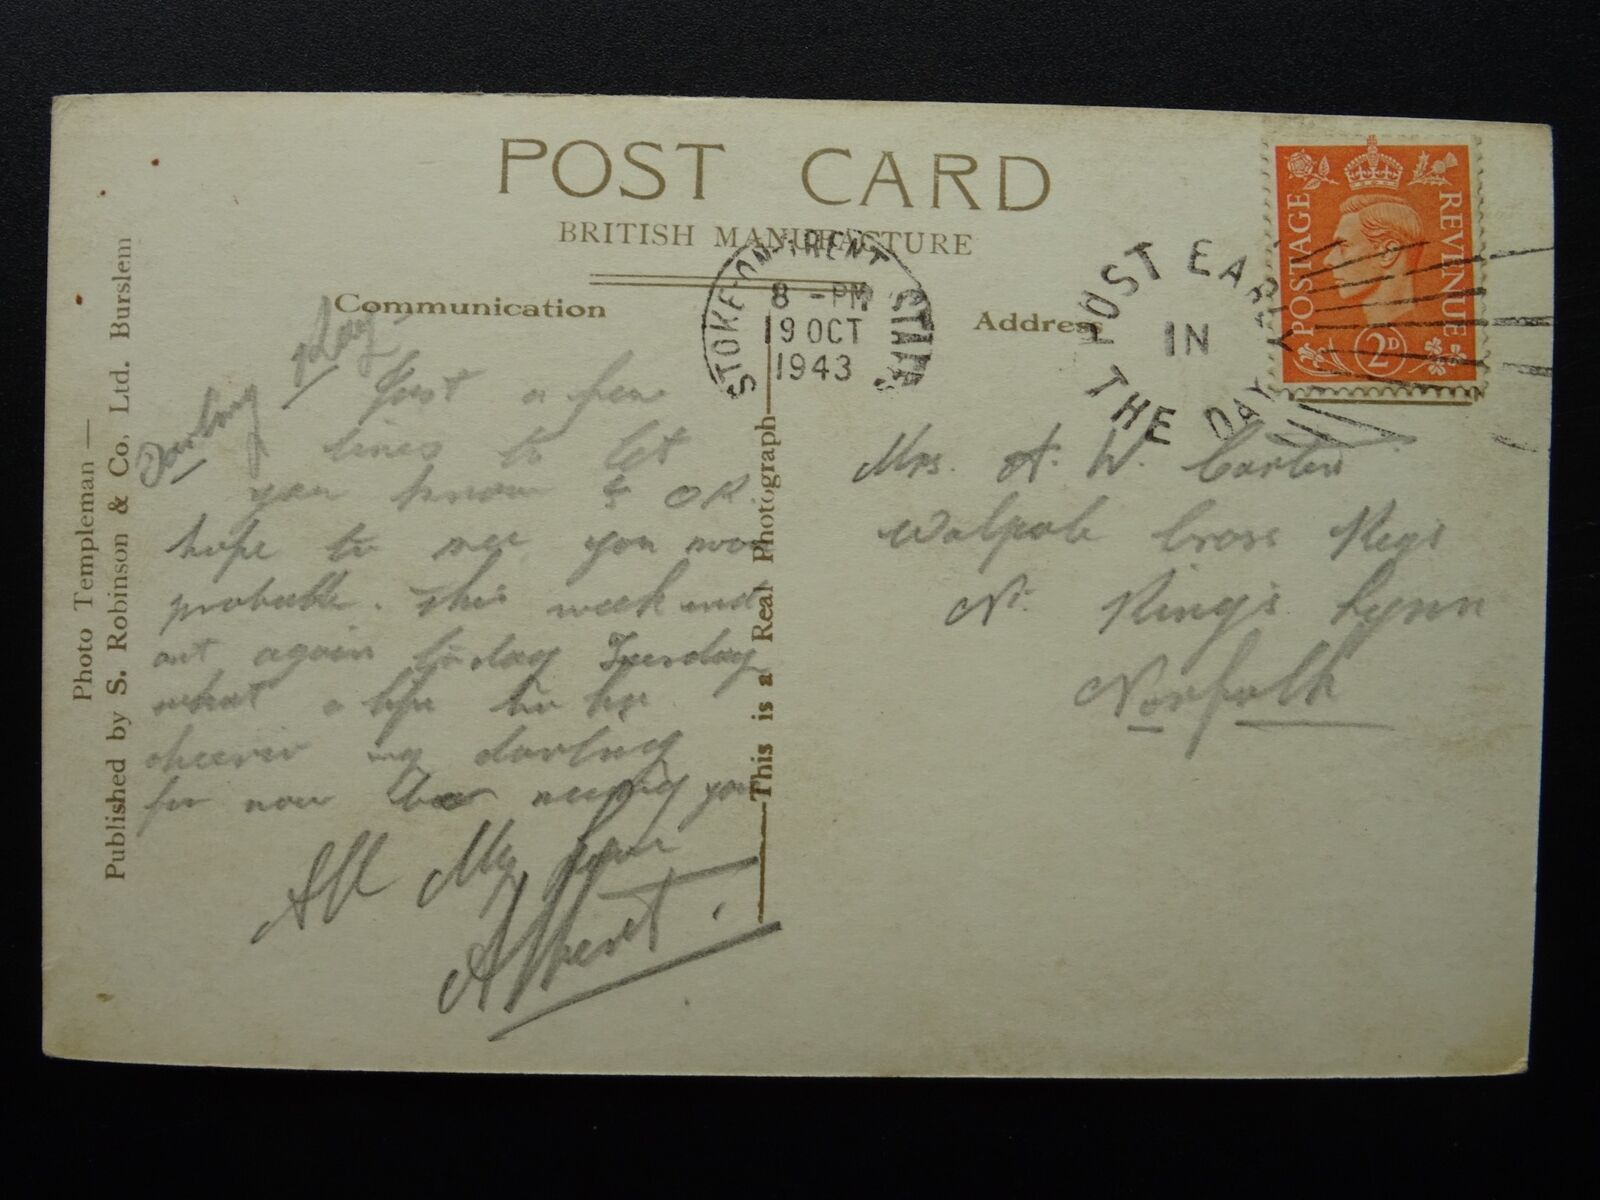 POST CARD
BRITISH MANUFACTURE
Communication
Address
STOKE-ON-TRENT STAFFS
8 - PM
19 OCT
1943
POST EARLY
IN
THE DAY
POSTAGE
REVENUE
2D
Photo Templeman —
Published by S. Robinson & Co. Ltd. Burslem
This is a Real Photograph
Darling
Just a few
lines to let
you know I OK
hope to see you
probable. this week end
out again today Tuesday
what a life
cheerio my darling
for now
All My Love
Albert.
Mrs. A. W. Carter
Walpole Cross Keys
Nr. King's Lynn
Norfolk